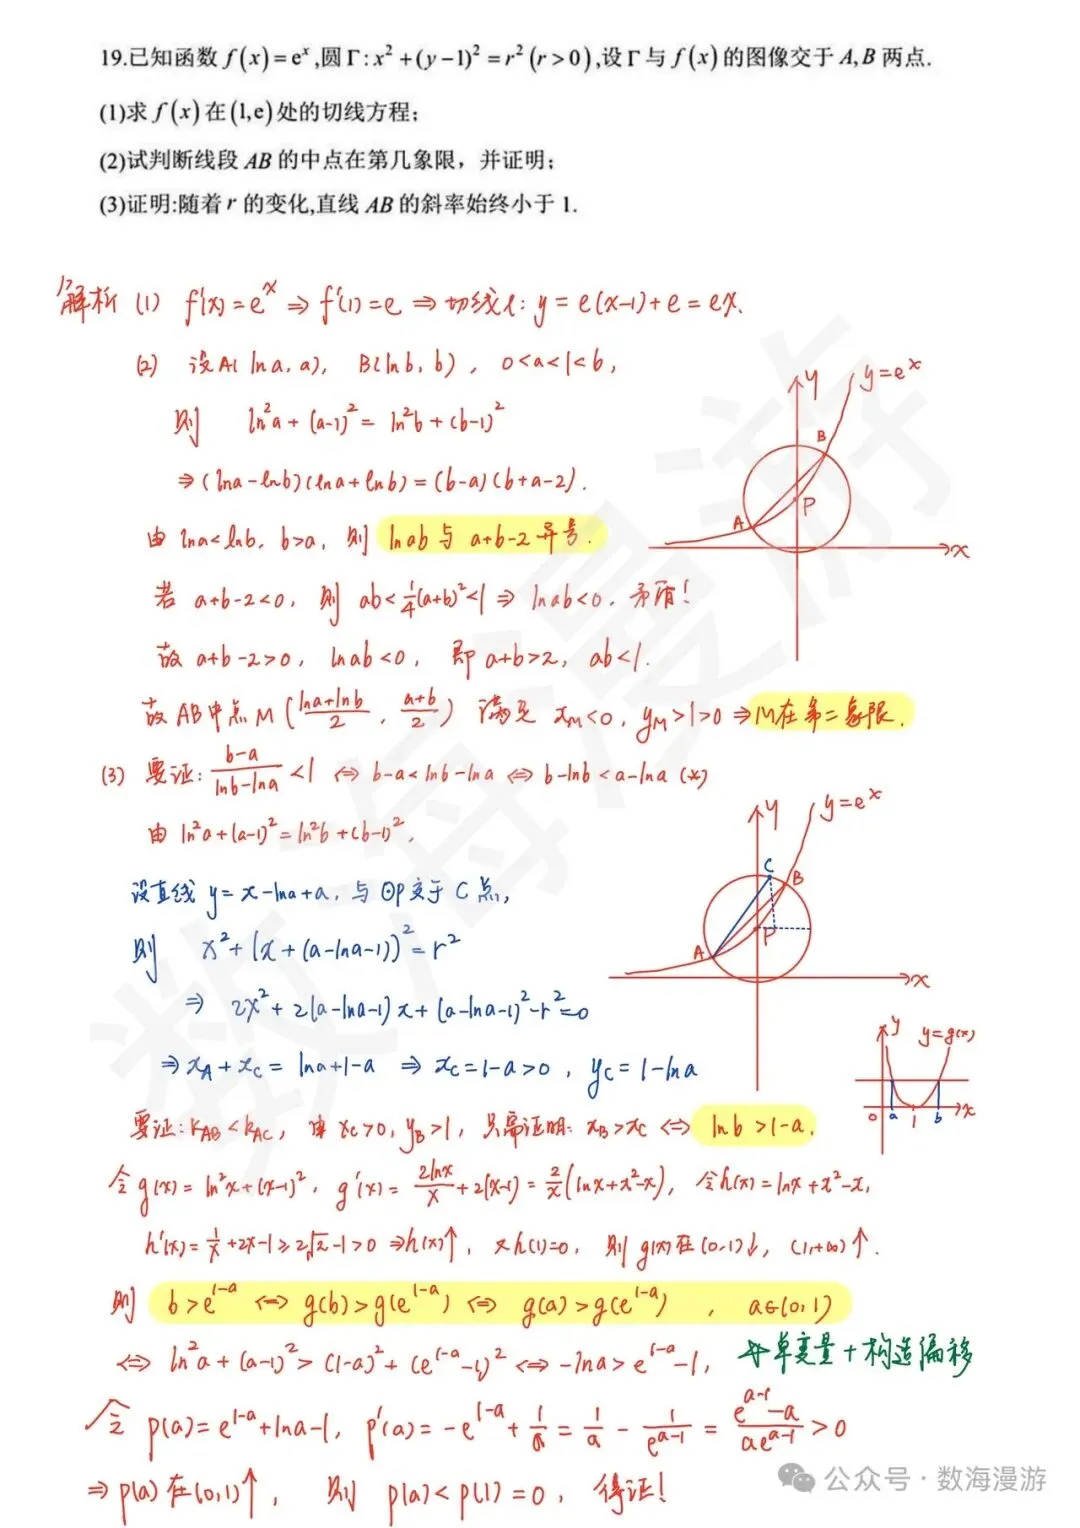 19.已知函数 f(x)=eˣ,圆 Γ:x²+(y−1)²=r²(r>0),设Γ与 f(x)的图像交于 A,B 两点.
(1)求 f(x)在(1,e)处的切线方程;
(2)试判断线段 AB 的中点在第几象限，并证明;
(3)证明:随着 r 的变化,直线 AB 的斜率始终小于 1.
解析 (1) f'(x)=eˣ ⇒ f'(1)=e ⇒ 切线l: y=e(x-1)+e=ex.
(2) 设A(lna, a), B(lnb, b), 0<a<1<b,
则 ln²a+(a-1)²=ln²b+(b-1)²
⇒(lna-lnb)(lna+lnb)=(b-a)(b+a-2).
由 lna<lnb, b>a, 则 lnab 与 a+b-2 异号.
若 a+b-2<0, 则 ab<¼(a+b)²<1 ⇒ lnab<0, 矛盾!
故 a+b-2>0, lnab<0, 即 a+b>2, ab<1.
故AB中点M((lna+lnb)/2, (a+b)/2) 满足 x_M<0, y_M>1>0 ⇒M在第二象限.
y
y=eˣ
B
P
A
x
(3) 要证: (b-a)/(lnb-lna)<1 ⇔ b-a<lnb-lna ⇔ b-lnb<a-lna (*)
由 ln²a+(a-1)²=ln²b+(b-1)²,
设直线 y=x-lna+a, 与⊙P交于C点,
则 x²+(x+(a-lna-1))²=r²
⇒ 2x²+2(a-lna-1)x+(a-lna-1)²-r²=0
⇒x_A+x_C=lna+1-a ⇒ x_C=1-a>0, y_C=1-lna
y
y=eˣ
C
B
P
A
x
y
y=g(x)
0 a 1 b x
要证:k_AB<k_AC, 由 x_C>0, y_B>1, 只需证明: x_B>x_C ⇔ lnb>1-a.
令g(x)=ln²x+(x-1)², g'(x)=2lnx/x+2(x-1)=2/x(lnx+x²-x), 令h(x)=lnx+x²-x,
h'(x)=1/x+2x-1≥2√2-1>0 ⇒h(x)↑, 又h(1)=0, 则 g(x)在(0,1)↓, (1,+∞)↑.
则 b>e^(1-a) ⇔ g(b)>g(e^(1-a)) ⇔ g(a)>g(e^(1-a)), a∈(0,1)
⇔ ln²a+(a-1)²>(1-a)²+(e^(1-a)-1)² ⇔ -lna>e^(1-a)-1,
单变量+构造偏移
令 p(a)=e^(1-a)+lna-1, p'(a)=-e^(1-a)+1/a=1/a-1/e^(a-1)=(e^(a-1)-a)/(ae^(a-1))>0
⇒p(a)在(0,1)↑, 则 p(a)<p(1)=0, 得证!
公众号·数海漫游
数海漫游